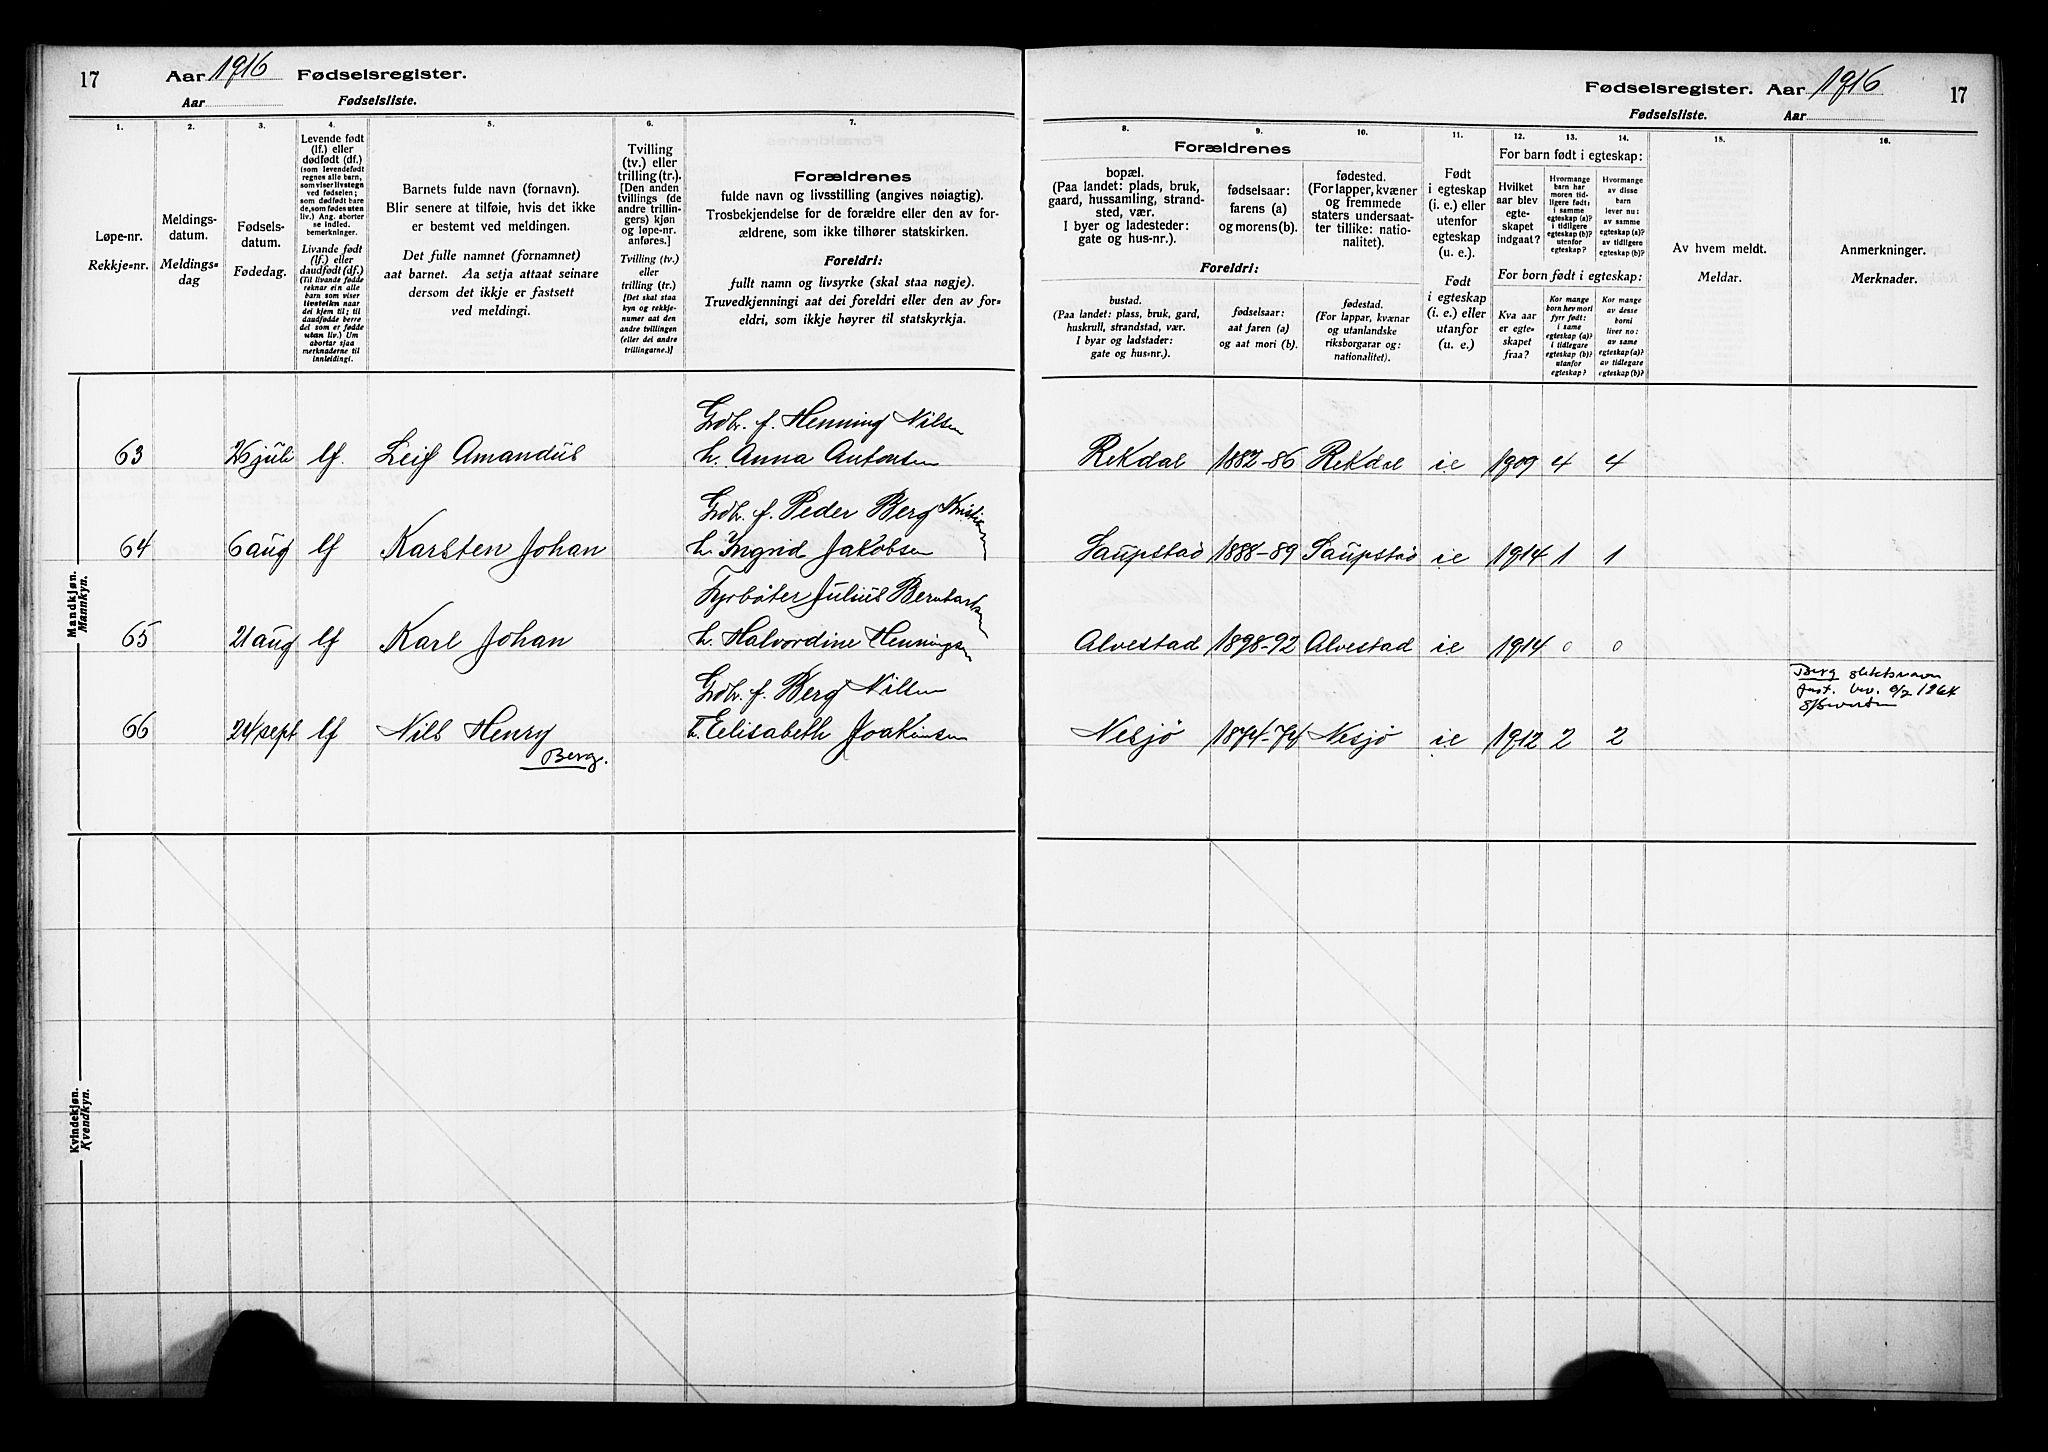 17 Aar 1916 Fødselsregister.
Aar Fødselsliste.
1.
2.
3.
4.
5.
6.
7.
Løpe-nr.
Rekkje=nr.
Meldings-
datum.
Meldings=
dag
Fødsels-
datum.
Fødedag.
Levende født
(lf.) eller
dødfødt (df.)
(som levendefødt
regnes alle barn,
som viser livstegn
ved fødselen;
som dødfødt bare
de, som fødes uten
liv.) Ang. aborter
se indled.
bemerkninger.
Livande født
(lf.) eller
daudfødt (df.)
(Til livande fødde
reknar ein alle
barn som viser
livsteikn naar
dei kjem til; til
daudfødde berre
dei som er fødde
utan liv.) Um
abortar sjaa
merknaderne til
innleidingi.
Barnets fulde navn (fornavn).
Blir senere at tilføie, hvis det ikke
er bestemt ved meldingen.
Det fulle namnet (fornamnet)
aat barnet. Aa setja attaat seinare
dersom det ikkje er fastsett
ved meldingi.
Tvilling
(tv.) eller
trilling (tr.).
[Den anden
tvillings (de
andre trillin-
gers) kjøn
og løpe-nr.
anføres.]
Tvilling (tv.)
eller
trilling (tr.)
[Det skal staa
kyn og rekkje-
numer aat den
andre tvillingen
(eller dei andre
trillingarne.)]
Forældrenes
fulde navn og livsstilling (angives nøiagtig).
Trosbekjendelse for de forældre eller den av for-
ældrene, som ikke tilhører statskirken.
Foreldri:
fullt namn og livsyrke (skal staa nøgje).
Truvedkjenningi aat dei foreldri eller den av for-
eldri, som ikkje høyrer til statskyrkja.
Mandkjøn.
Mannkyn.
63 26 juli lf. Leif Amandus
Grdbr. f. Henning Nilsen
h. Anna Antonsen
64 6 aug lf Karsten Johan
Grdbr. f. Peder Berg Kristiansen
h. Ingrid Jakobsen
65 21 aug lf Karl Johan
Fyrbøter Julius Bernhardsen
h. Halvordine Henningsen
66 24 sept lf Nils Henry
Berg.
Grdbr. f. Berg Nilsen
h. Elisabeth Joakimsen
Kvindekjøn.
Kvendkyn.
Fødselsregister. Aar 1916 17
Fødselsliste. Aar
8.
9.
10.
11.
12.
13.
14.
15.
16.
Forældrenes
bopæl.
(Paa landet: plads, bruk,
gaard, hussamling, strand-
sted, vær.
I byer og ladesteder:
gate og hus-nr.).
fødselsaar:
farens (a)
og morens (b).
fødested.
(For lapper, kvæner
og fremmede
staters undersaat-
ter tillike: natio-
nalitet).
Foreldri:
bustad.
(Paa landet: plass, bruk, gard,
huskrull, strandstad, vær.
I byar og ladstader:
gate og hus=nr.).
fødselsaar:
aat faren (a)
og aat mori (b).
fødestad.
(For lappar, kvænar
og utanlandske
riksborgarar og:
nationalitet).
Født
i egteskap
(i. e.) eller
utenfor
egteskap
(u. e.).
Født
i egteskap
(i. e.) eller
utanfor
(u. e.).
For barn født i egteskap:
Hvilket
aar blev
egte-
skapet
indgaat?
Hvormange
barn har
moren tid-
ligere født:
i samme
egteskap (a)?
i tidligere
egteskap (b)?
utenfor
egteskap?
Hvormange
av disse
barn
lever nu:
av samme
egteskap (a)?
av tidligere
egteskap (b)?
For born født i egteskap:
Kva aar
er egte-
skapet
fraa?
Kor mange
born hev mori
fyrr født:
i same
egteskap (a)?
i tidlegare
egteskap (b)?
utanfor
egteskap?
Kor mange
av desse
borni
liver no:
av same
egteskap (a)?
av tidlegare
egteskap (b)?
Av hvem meldt.
Meldar.
Anmerkninger.
Merknader.
Rekdal 1882-86 Rekdal i.e 1909 4 4
Laupstad 1888-89 Laupstad i.e 1914 1 1
Alvestad 1898-92 Alvestad i.e 1914 0 0
Nesjø 1874-74 Nesjø i.e 1912 2 2
Berg slektsnavn